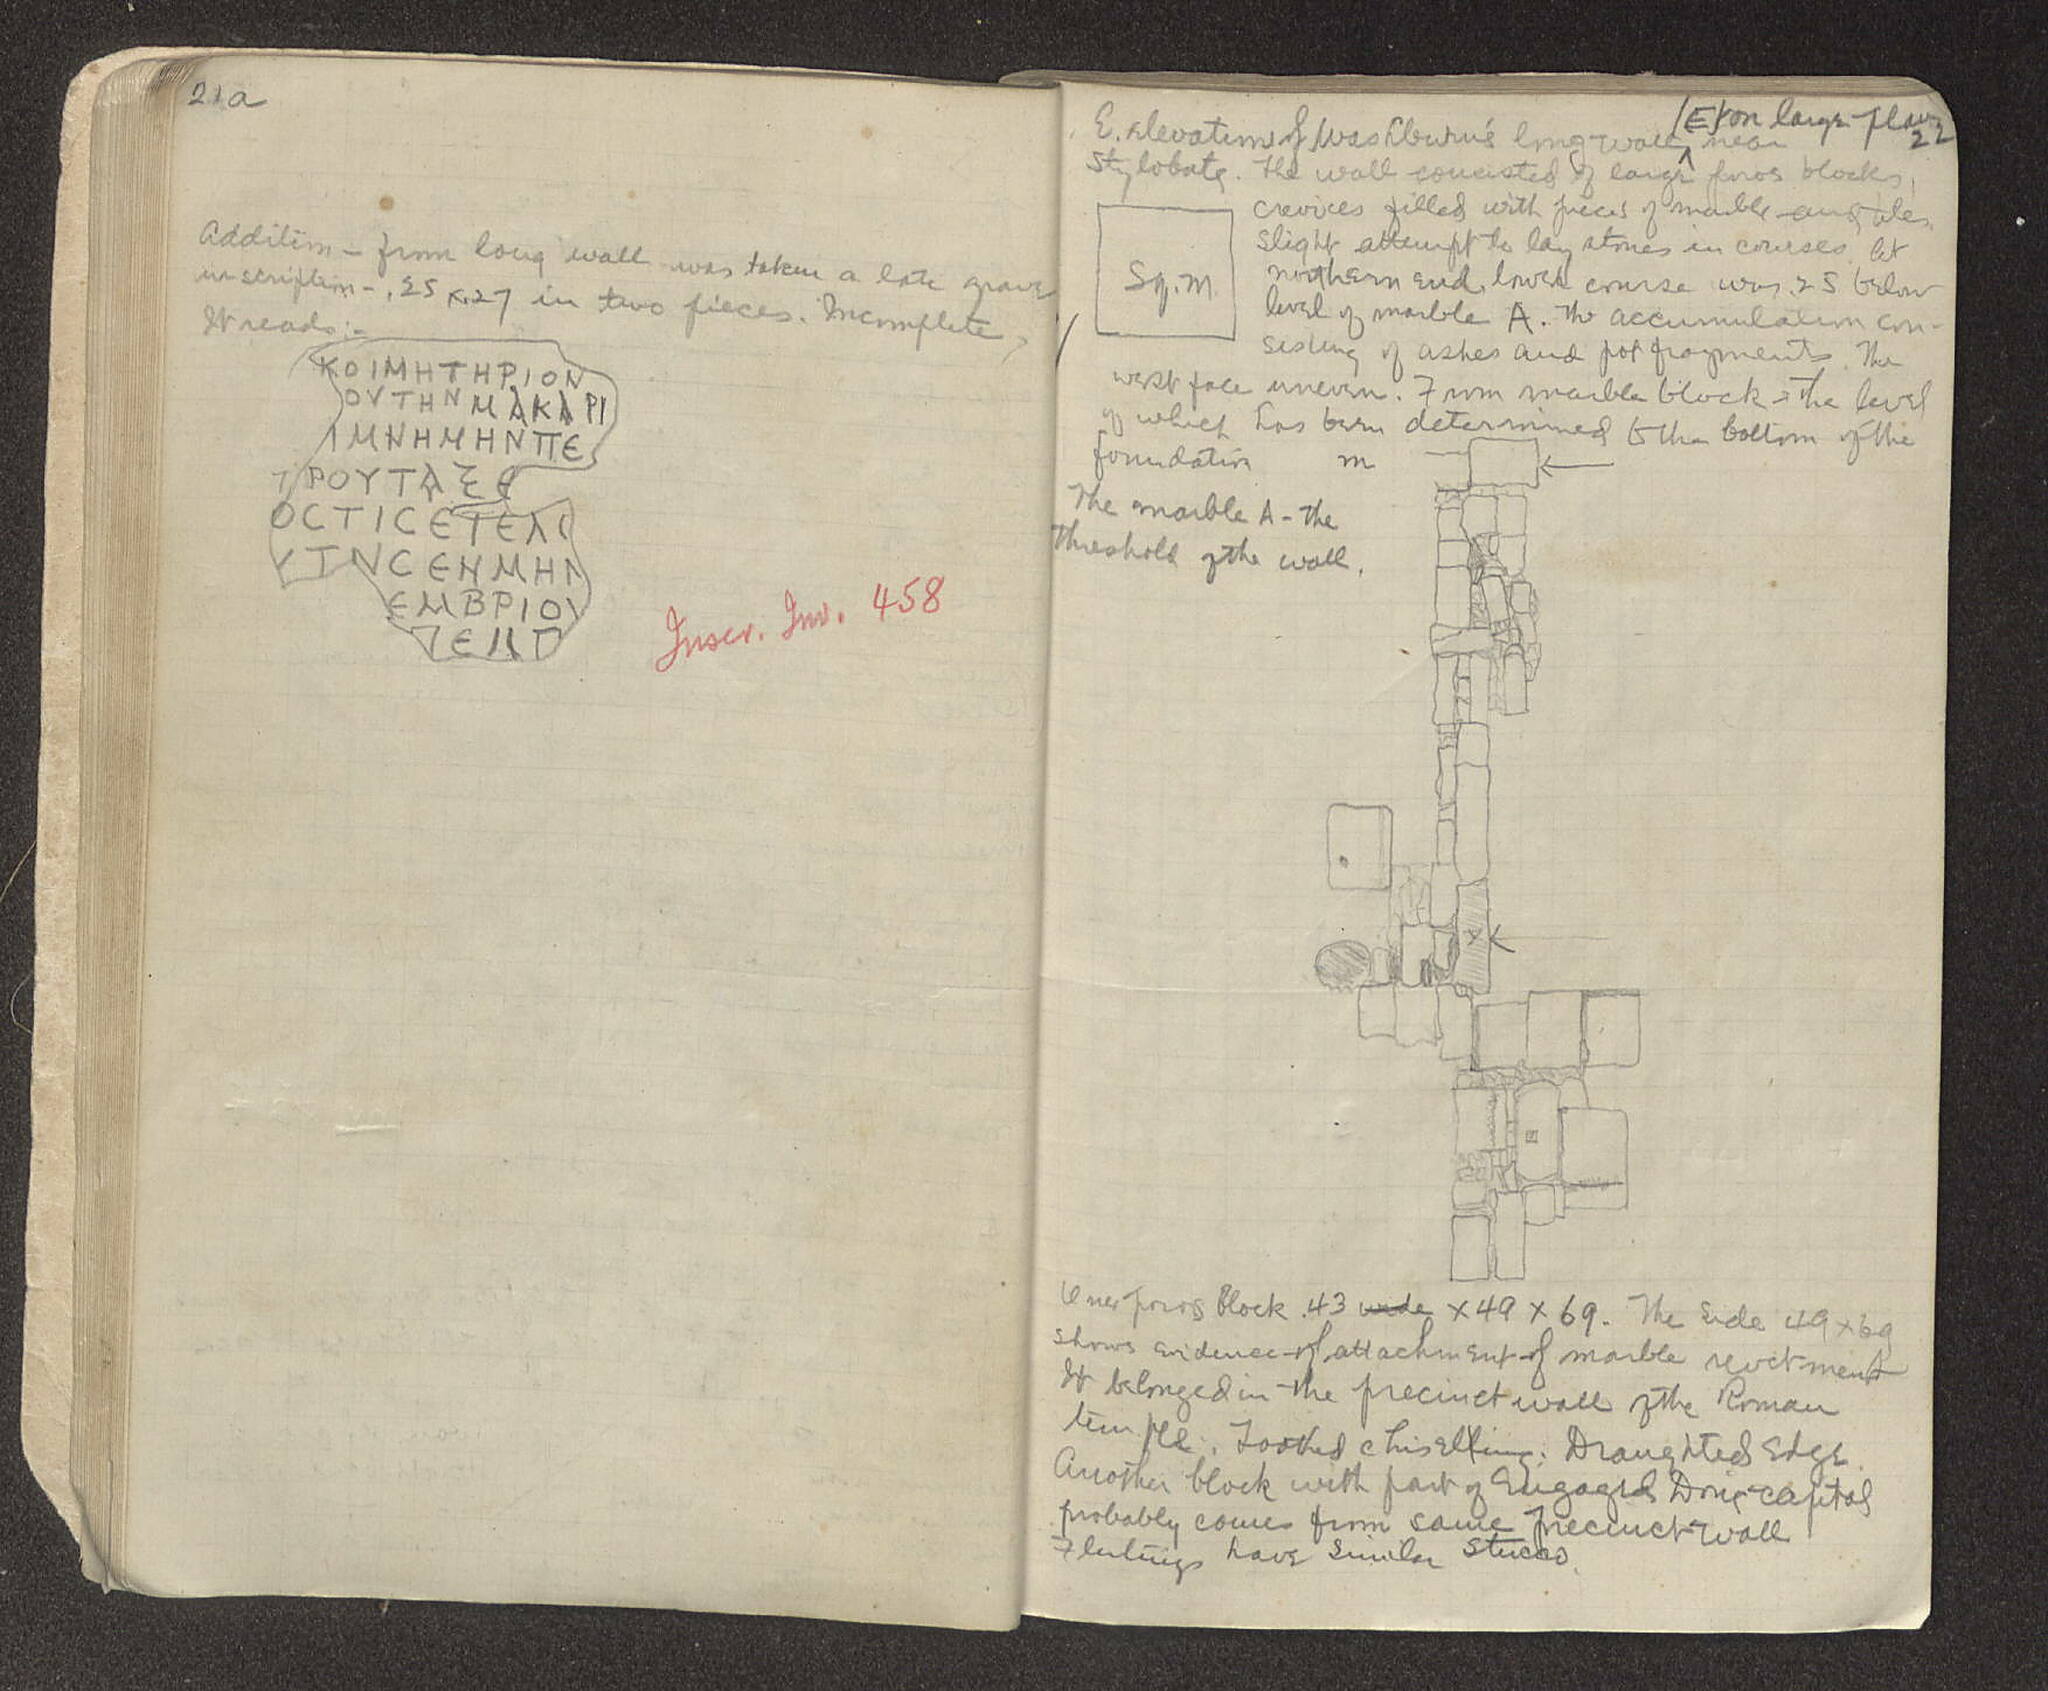 21a
Addition - from long wall was taken a late grave
inscription - .25 x .27 in two pieces. Incomplete,
It reads:-
ΚΟΙΜΗΤΗΡΙΟΝ
ΟΥΤΗΝΜΑΚΑΡΙ
ΙΜΝΗΜΗΝΠΕ
ΤΡΟΥΤΑΞΕ
ΟCΤΙCΕΤΕΛΙ
ΥΤΝCΕΝΜΗΝ
ΕΜΒΡΙΟΥ
ΕΠ
Inscr. Inv. 458
(E) on large plan
22
E. elevation of Washburn's long wall near
Stylobate. The wall consisted of large poros blocks,
crevices filled with pieces of marble and tiles.
Slight attempt to lay stones in courses. At
northern end, lower course was .25 below
level of marble A. The accumulation con-
sisting of ashes and pot fragments. The
west face uneven. From marble block - the level
of which has been determined to the bottom of the
foundation m
Sq. m.
The marble A - the
threshold of the wall.
x
One poros block .43 wide x 49 x 69. The side 49 x 69
shows evidence of attachment of marble revetment
It belonged in the precinct wall of the Roman
temple. Toothed chiselling. Draughted Edge.
Another block with part of Engaged Doric capital
probably comes from same precinct wall
Flutings have similar stucco.